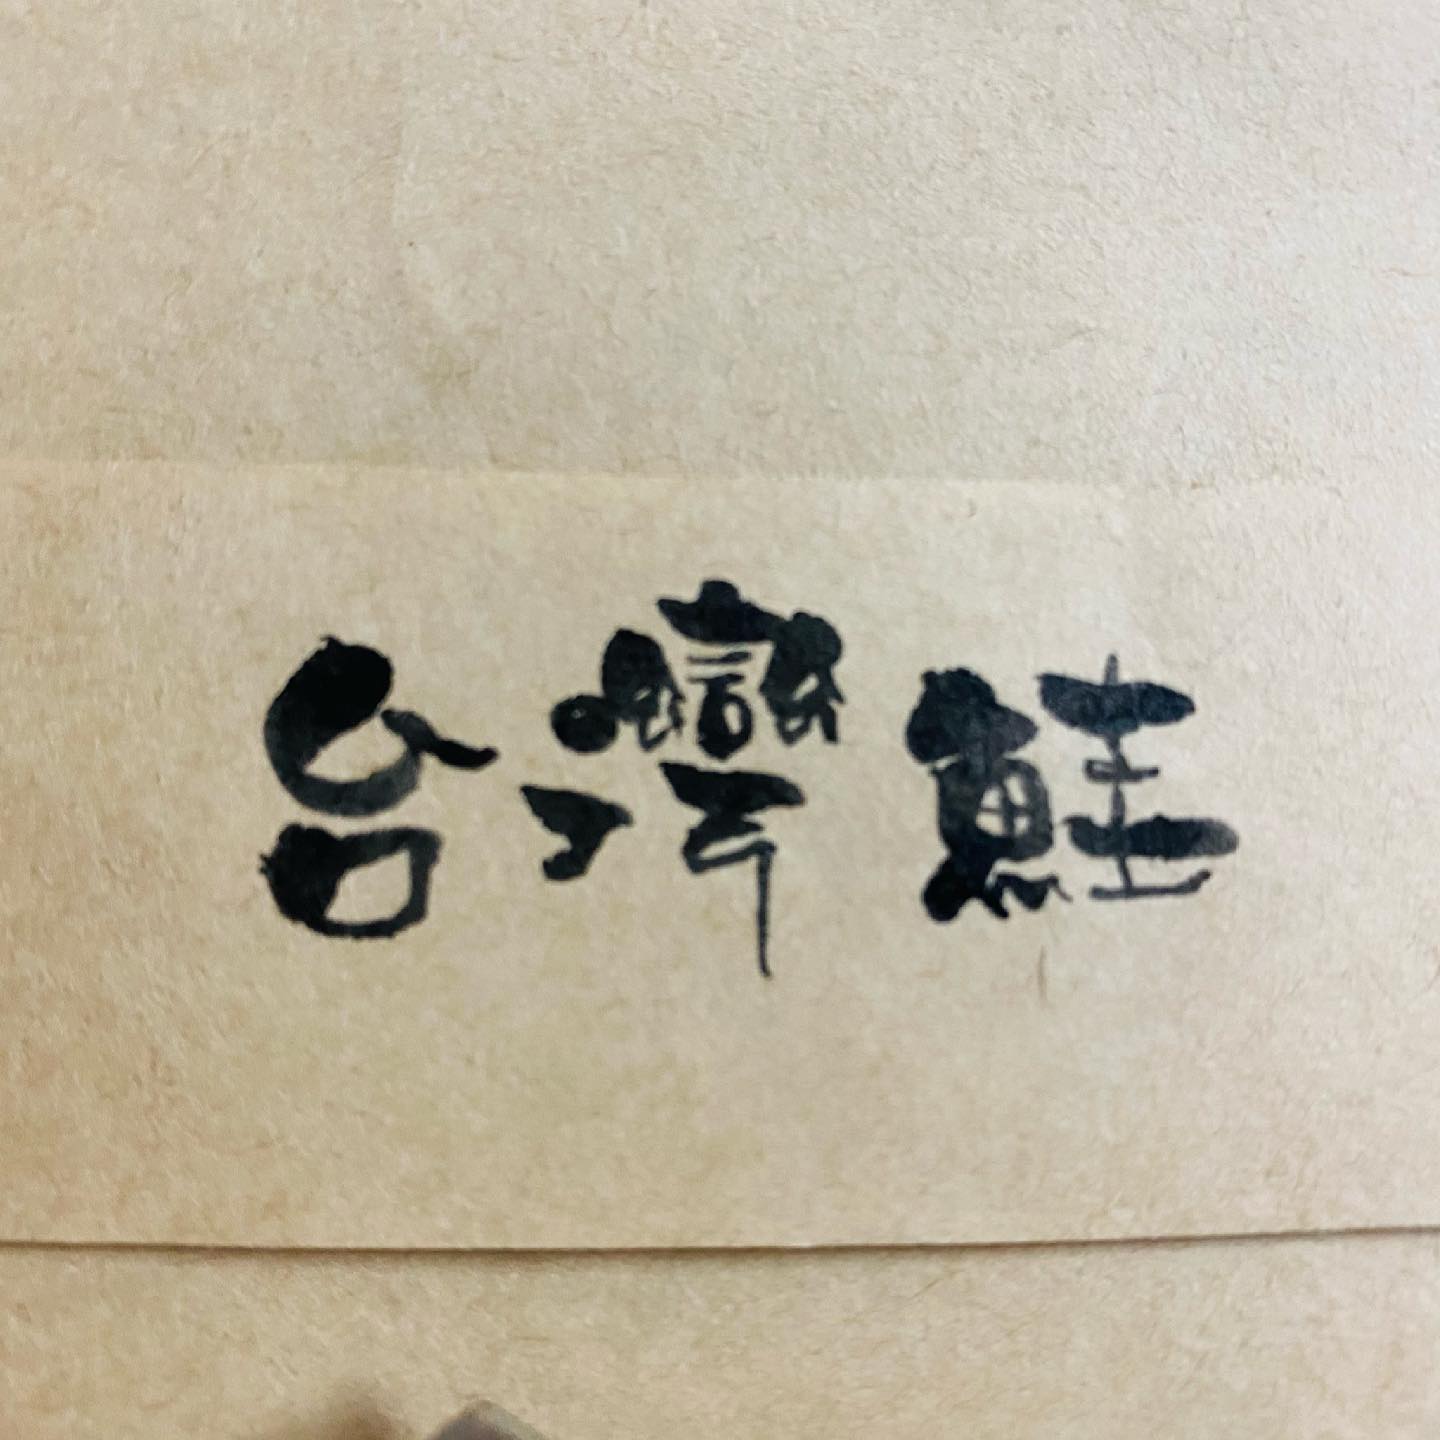 台灣鮭